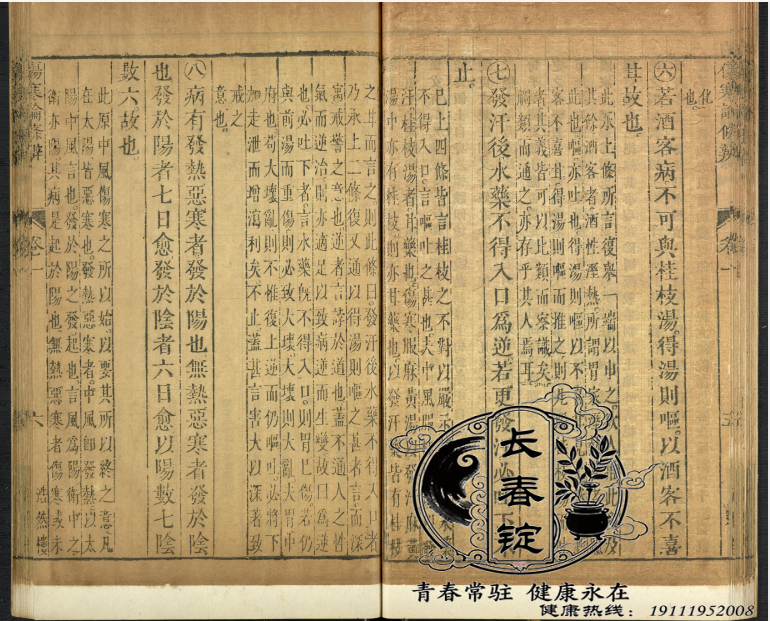 化
也。
㊅若酒客病不可與桂枝湯。得湯則嘔。以酒客不喜
甘故也。
此承上條所言復舉一
其餘酒客者酒性溼熱所謂胃
此也嘔亦吐也得湯則嘔以不
客不喜甘得湯則嘔而推之則凡
者其義皆可以比類而察識矣
觸類而通之亦存乎其人焉耳
㊆發汗後水藥不得入口爲逆若更發汗必吐下
止。
已上四條皆言桂枝之不對以嚴示
不得入口。言嘔吐之甚也夫中風
汗桂枝湯者甘藥也傷寒服麻黃湯
湯中亦有桂枝則亦甘藥也以發汗
皆有桂枝
之甘而言之則此條曰。發汗後水藥不得入口者
乃承上二條復又通以得湯則嘔之甚者言而深
寓戒警之意也逆者言誖於道也蓋不通人之性
氣而逆治則亦適足以致病逆而生變故曰爲逆
也必吐下者言水藥旣不得入口。則胃已傷若仍
與前湯而重傷則必致大壞大壞則大亂大胃中
府也苟大壞亂則不惟復上逆而仍嘔吐。必將下
加走泄而增瀉利矣不止蓋甚言害大以深著致
戒之
意也。
㊇病有發熱惡寒者發於陽也無熱惡寒者發於陰
也發於陽者七日愈發於陰者六日愈以陽數七陰
數六故也
此原中風傷寒之所以始。以要其所以終之意凡
在太陽皆惡寒也。發熱惡寒者。中風卽發熱以太
陽中風言也發於陽之發起也。言風爲陽衞中之
衞亦陽其病是起於陽也無熱惡寒者傷寒或未
傷寒論條辨
卷一
六
浩然樓
长春锭
青春常驻 健康永在
健康热线：19111952008